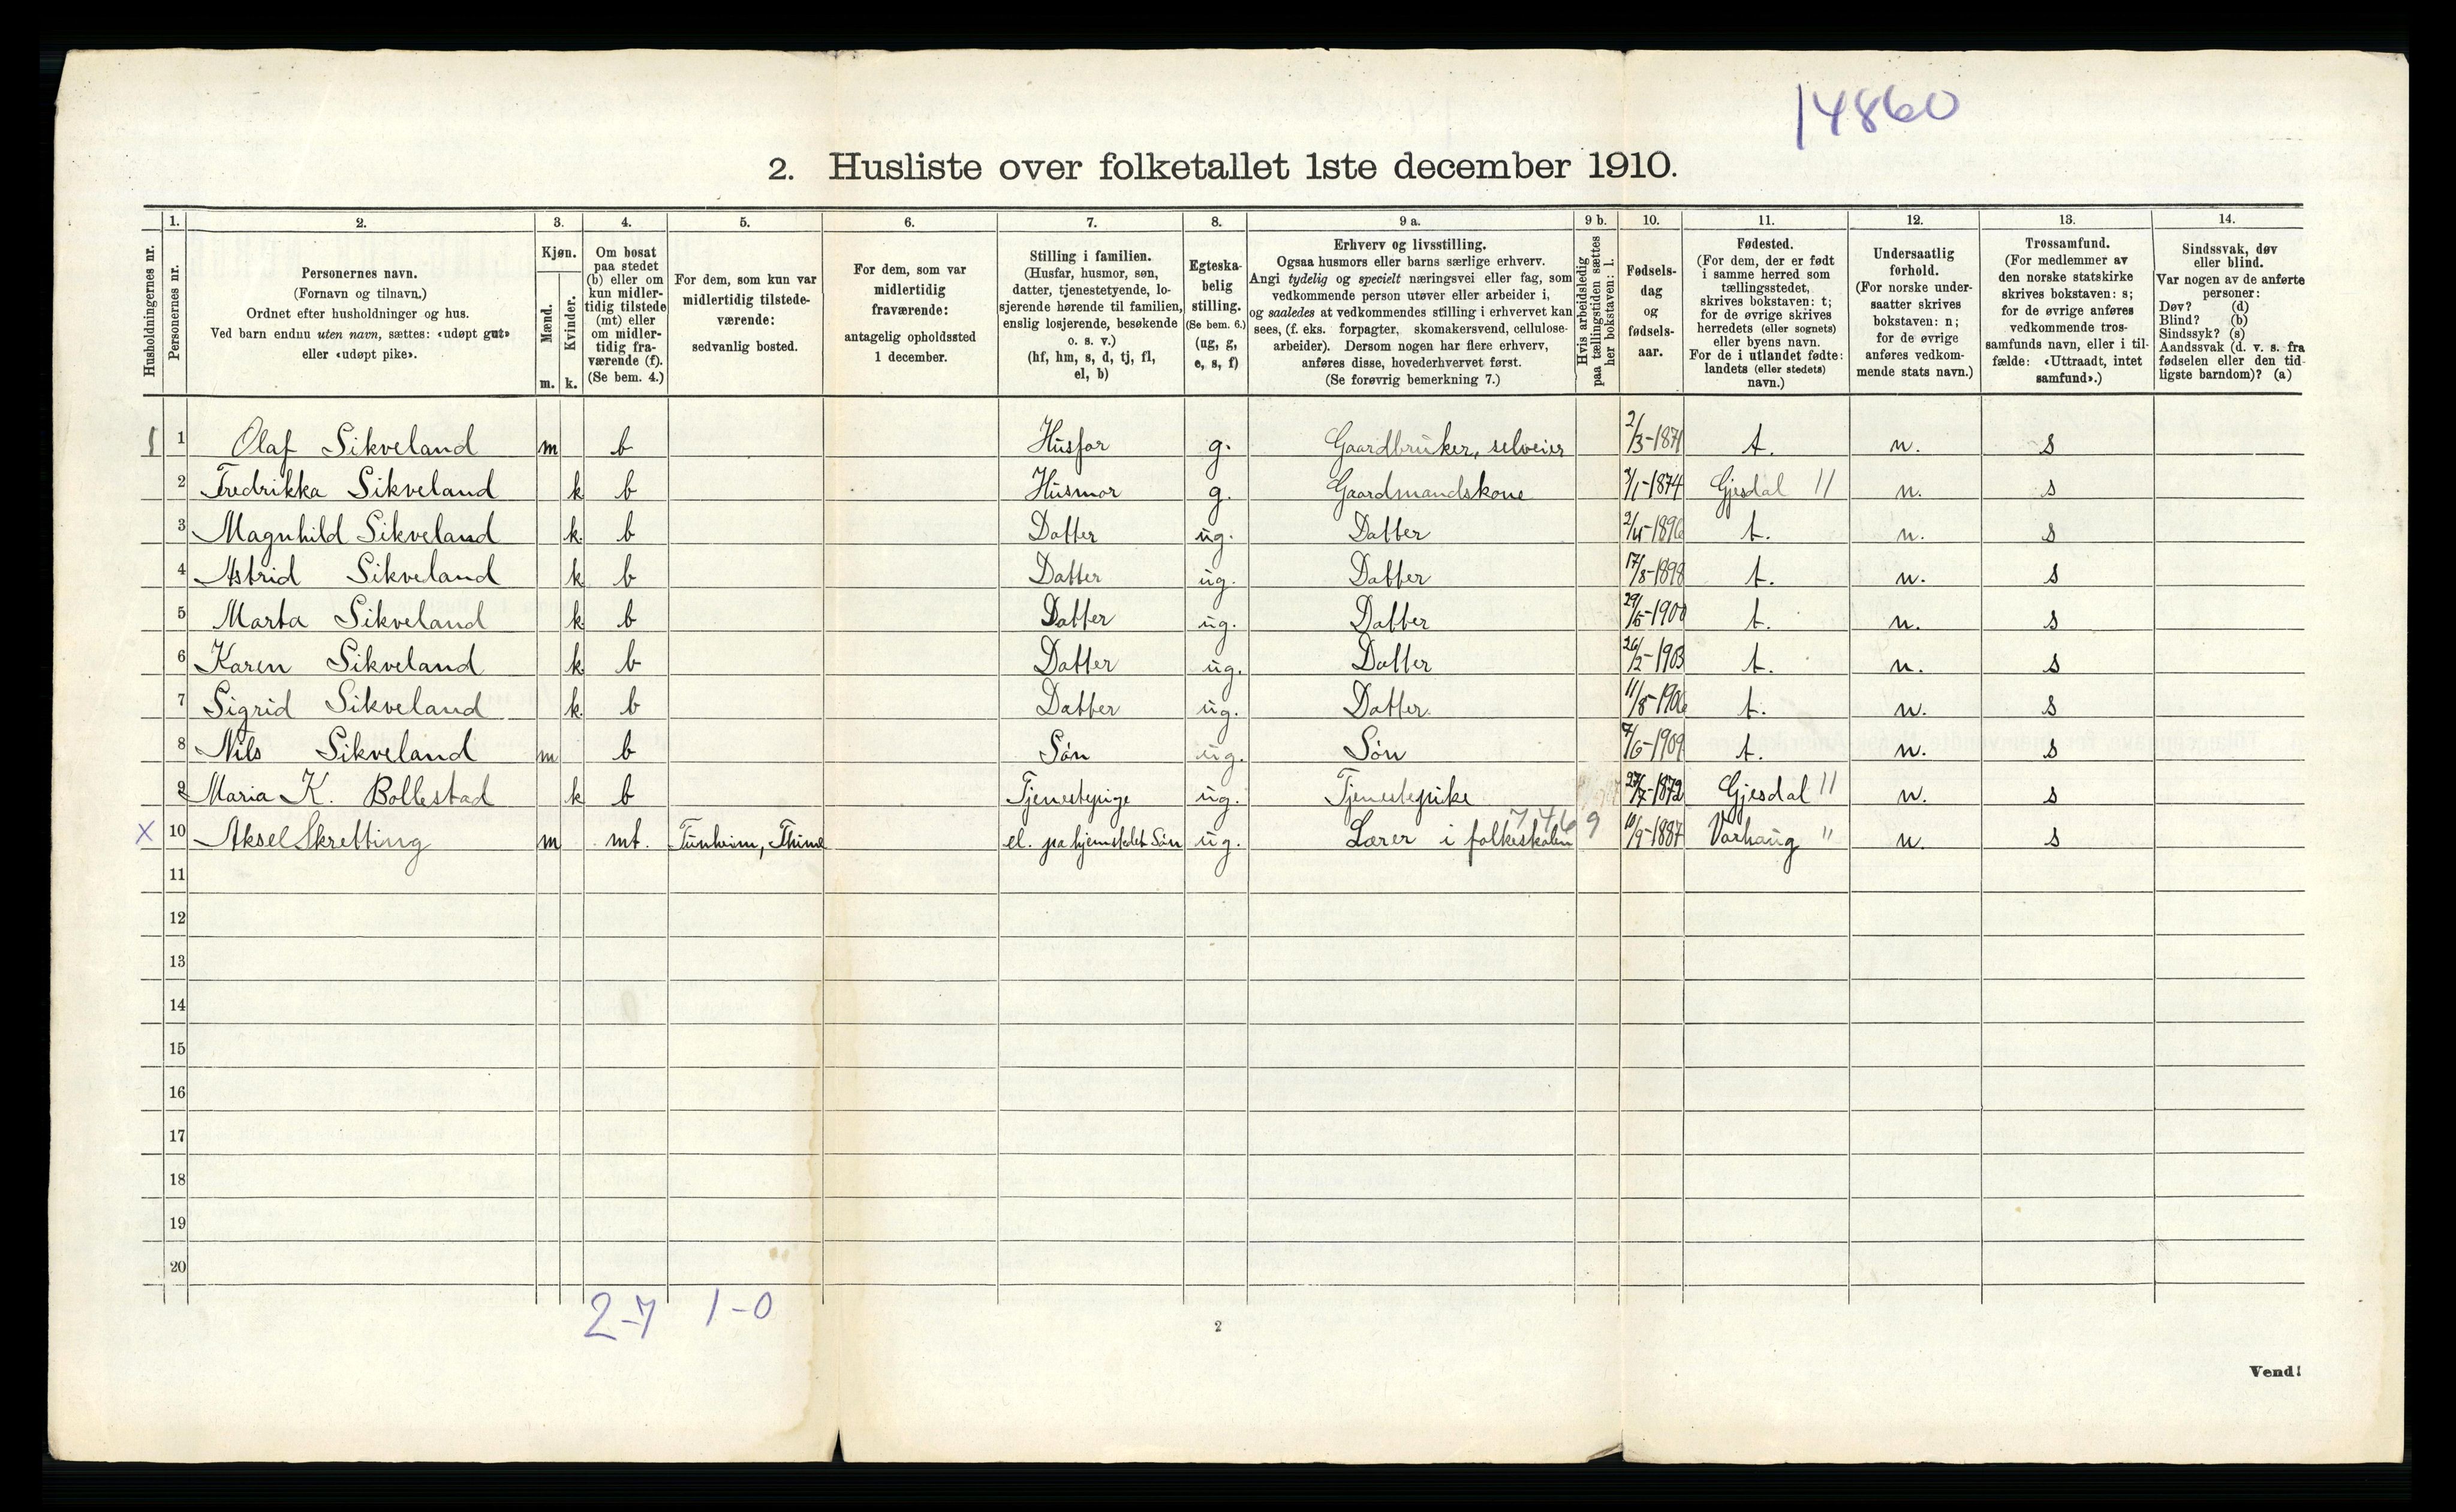 14860
2. Husliste over folketallet 1ste december 1910.
Husholdningernes nr.
1.
Personernes nr.
2.
Personernes navn.
(Fornavn og tilnavn.)
Ordnet efter husholdninger og hus.
Ved barn endnu uten navn, sættes: «udøpt gut»
eller «udøpt pike».
3.
Kjøn.
Mænd.
Kvinder.
m. k.
4.
Om bosat
paa stedet
(b) eller om
kun midler-
tidig tilstede
(mt) eller
om midler-
tidig fra-
værende (f).
(Se bem. 4.)
5.
For dem, som kun var
midlertidig tilstede-
værende:
sedvanlig bosted.
6.
For dem, som var
midlertidig
fraværende:
antagelig opholdssted
1 december.
7.
Stilling i familien.
(Husfar, husmor, søn,
datter, tjenestetyende, lo-
sjerende hørende til familien,
enslig losjerende, besøkende
o. s. v.)
(hf, hm, s, d, tj, fl,
el, b)
8.
Egteska-
belig
stilling.
(Se bem. 6.)
(ug, g,
e, s, f)
9 a.
Erhverv og livsstilling.
Ogsaa husmors eller barns særlige erhverv.
Angi tydelig og specielt næringsvei eller fag, som
vedkommende person utøver eller arbeider i,
og saaledes at vedkommendes stilling i erhvervet kan
sees, (f. eks. forpagter, skomakersvend, cellulose-
arbeider). Dersom nogen har flere erhverv,
anføres disse, hovederhvervet først.
(Se forøvrig bemerkning 7.)
9 b.
Hvis arbeidsledig
paa tællingstiden sættes
her bokstaven: l.
10.
Fødsels-
dag
og
fødsels-
aar.
11.
Fødested.
(For dem, der er født
i samme herred som
tællingsstedet,
skrives bokstaven: t;
for de øvrige skrives
herredets (eller sognets)
eller byens navn.
For de i utlandet fødte:
landets (eller stedets)
navn.)
12.
Undersaatlig
forhold.
(For norske under-
saatter skrives
bokstaven: n;
for de øvrige
anføres vedkom-
mende stats navn.)
13.
Trossamfund.
(For medlemmer av
den norske statskirke
skrives bokstaven: s;
for de øvrige anføres
vedkommende tros-
samfunds navn, eller i til-
fælde: «Uttraadt, intet
samfund».)
14.
Sindssvak, døv
eller blind.
Var nogen av de anførte
personer:
Døv? (d)
Blind? (b)
Sindssyk? (s)
Aandssvak (d. v. s. fra
fødselen eller den tid-
ligste barndom)? (a)
1 1 Olaf Sikveland m b Husfar g. Gaardbruker, selveier 2/3-1871 t. n. s
2 Fredrikka Sikveland k b Husmor g. Gaardmandskone 3/1-1874 Gjesdal 11 n. s
3 Magnhild Sikveland k. b Datter ug. Datter 2/4-1896 t. n. s
4 Astrid Sikveland k b Datter ug. Datter 17/8-1898 t. n. s
5 Marta Sikveland k b Datter ug. Datter 29/5-1900 t. n. s
6 Karen Sikveland k b Datter ug. Datter 26/2-1903 t. n. s
7 Sigrid Sikveland k. b Datter ug. Datter. 11/8-1906 t. n. s
8 Nils Sikveland m b Søn ug. Søn 7/6-1909 t. n. s
9 Maria K. Bollestad k b Tjenestepige ug. Tjenestepike 27/7-1872 Gjesdal 11 n. s
X 10 Aksel Skretting m mt. Tunheim, Thime el. pa hjemstedet Søn ug. Lærer i folkeskolen 7469 10/9-1887 Varhaug " n. s
11
12
13
14
15
16
17
18
19
20
2-7 1-0
2
Vend!